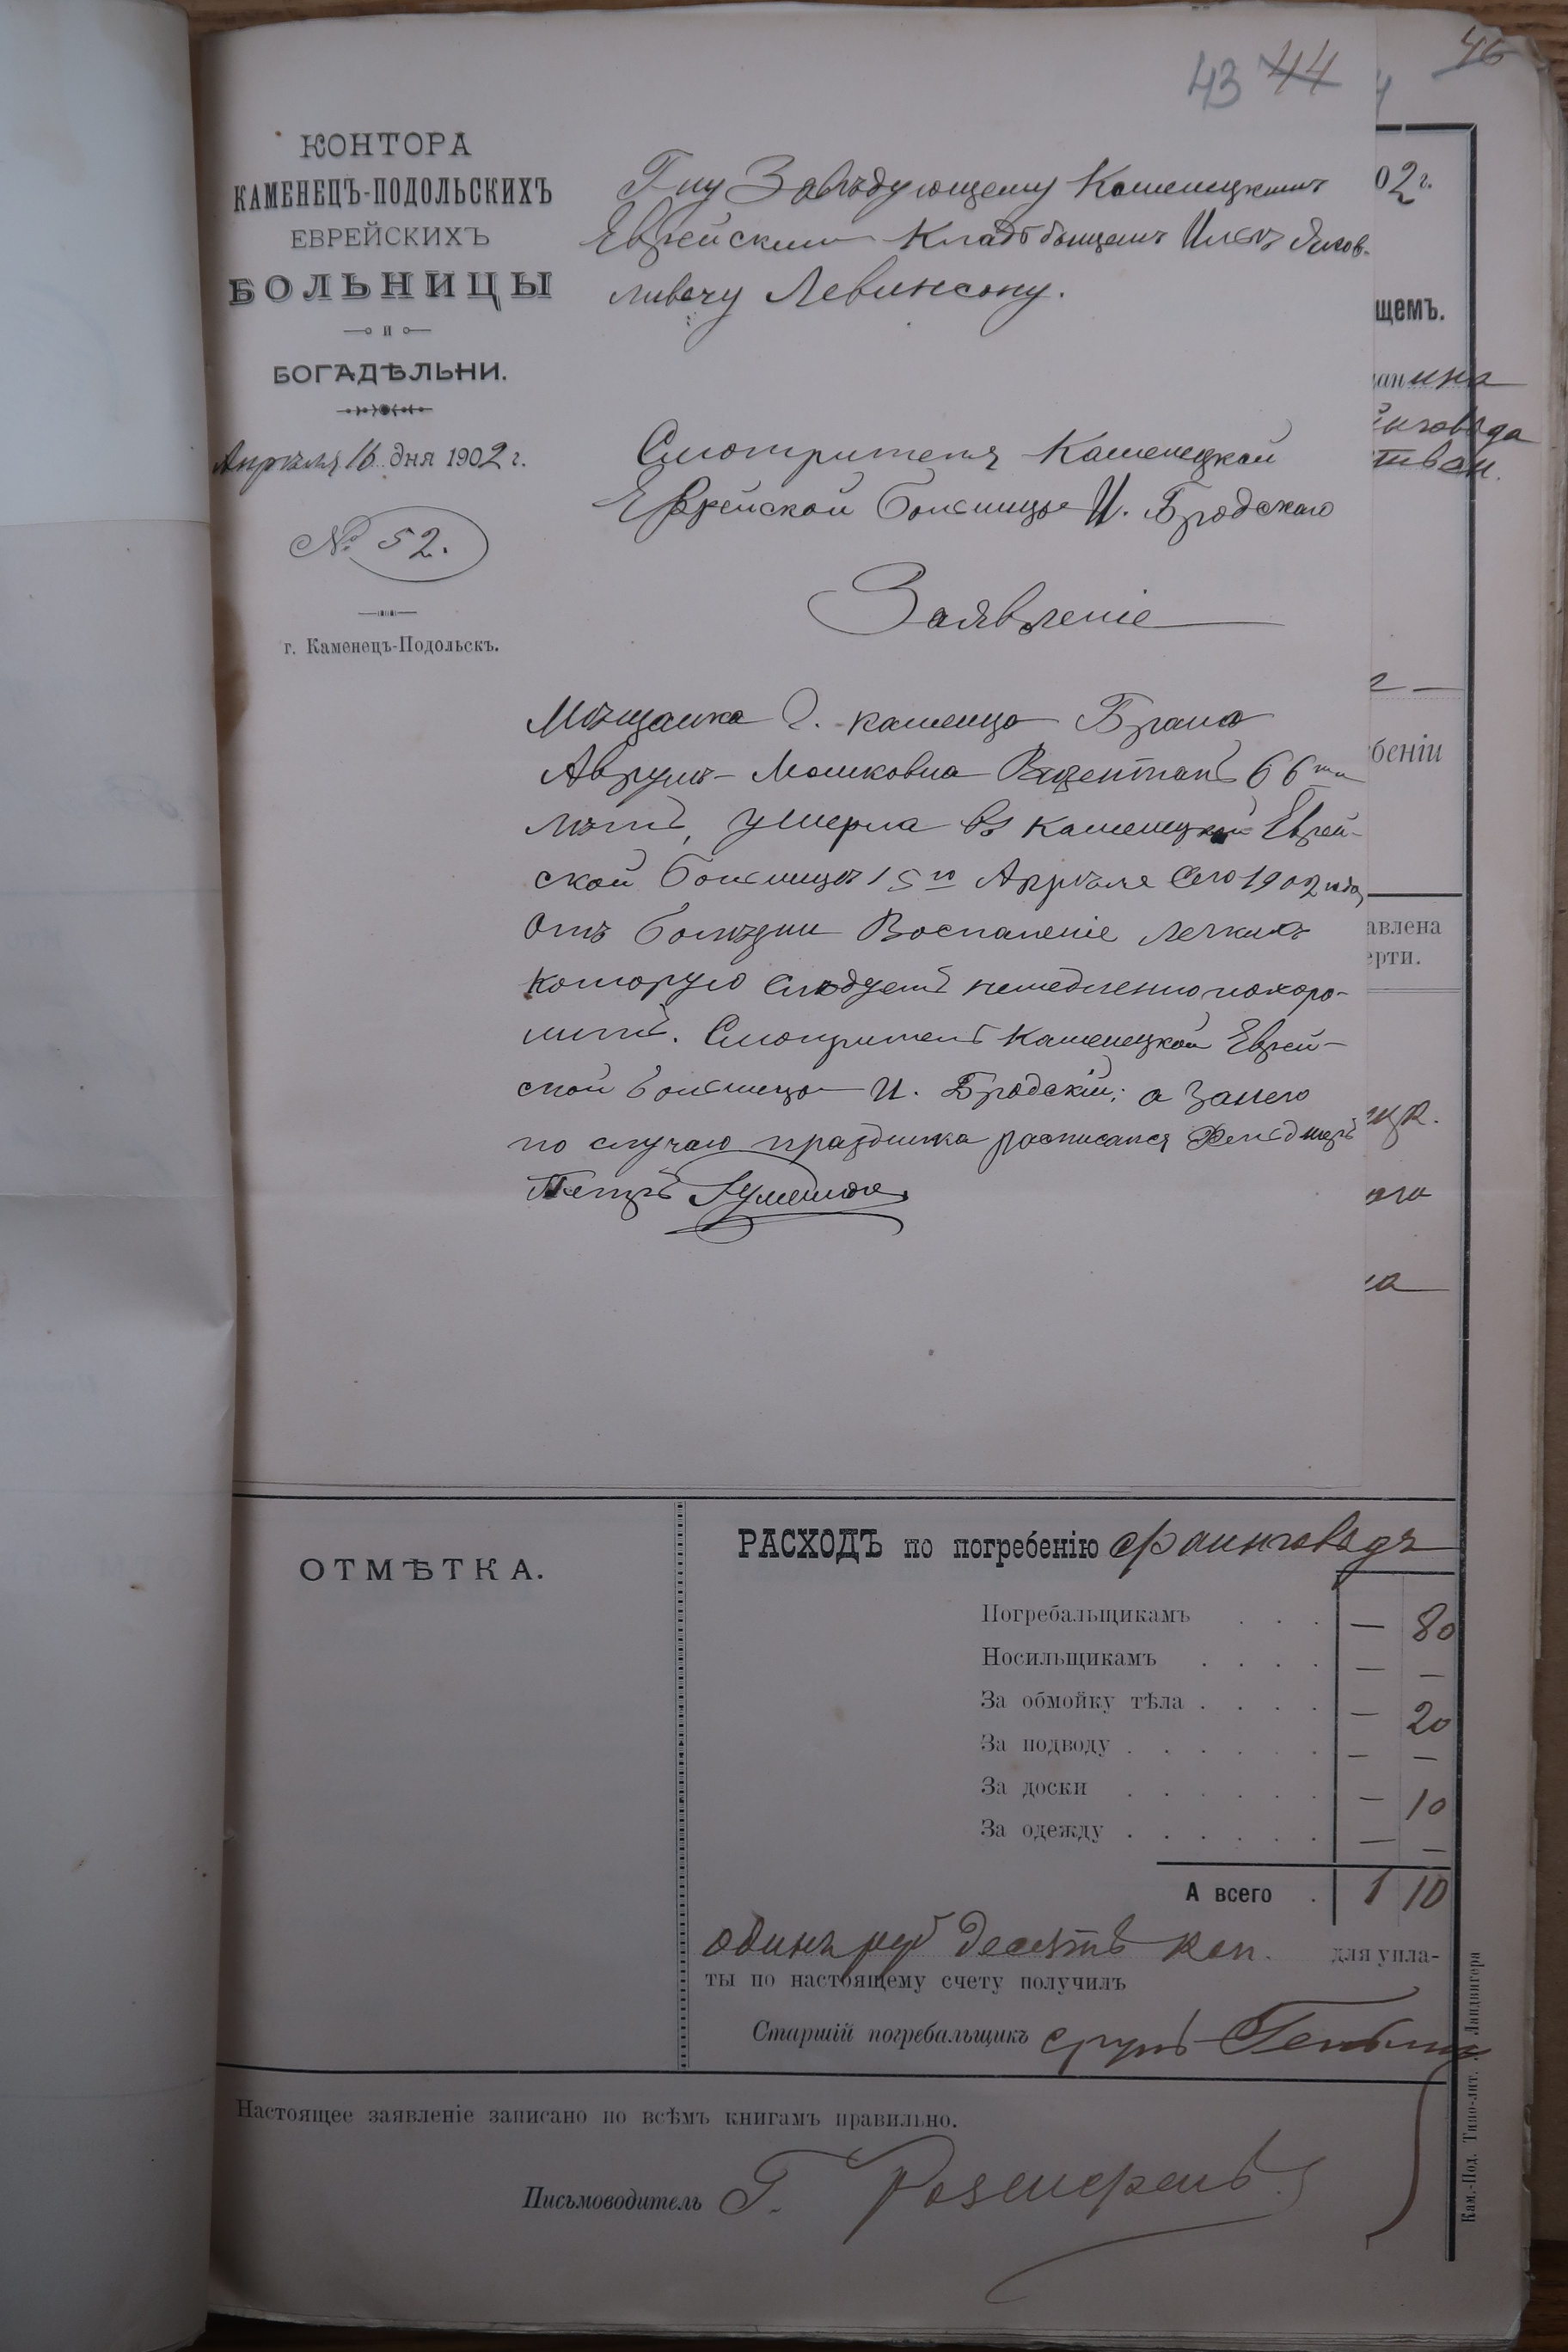 43 44
46
КОНТОРА
КАМЕНЕЦЪ-ПОДОЛЬСКИХЪ
ЕВРЕЙСКИХЪ
БОЛЬНИЦЫ
И
БОГАДѢЛЬНИ.
Апрѣля 16 дня 1902 г.
№ 52.
г. Каменецъ-Подольскъ.
Г-ну Завѣдующему Каменецкимъ
Еврейскимъ Кладбищемъ
Левинсону.
Смотрителя Каменецкой
Еврейской больницы И. Бродскаго
Заявленіе
Мѣщанка г. Каменца
Аврумъ-Мошковна 66ти
лѣтъ, умерла въ Каменецкой Еврей-
ской больницѣ 15го Апрѣля сего 1902 года,
отъ болѣзни Воспаленіе легкихъ
которую слѣдуетъ немедленно похоро-
нить. Смотритель Каменецкой Еврей-
ской больницы И. Бродскій; а за него
по случаю праздника расписался Фельдшеръ
Петръ
02 г.
щемъ.
бенiи
авлена
ерти.
ОТМѢТКА.
РАСХОДЪ по погребенію
Погребальщикамъ . . . — 80
Носильщикамъ . . . . — —
За обмойку тѣла . . . . — 20
За подводу . . . . . . — —
За доски . . . . . . — 10
За одежду . . . . . . — —
А всего . 1 10
одинъ руб десять коп. для упла-
ты по настоящему счету получилъ
Старшій погребальщикъ
Настоящее заявленіе записано по всѣмъ книгамъ правильно.
Письмоводитель Г.
Кам.-Под. Типо-лит. Ландвигера